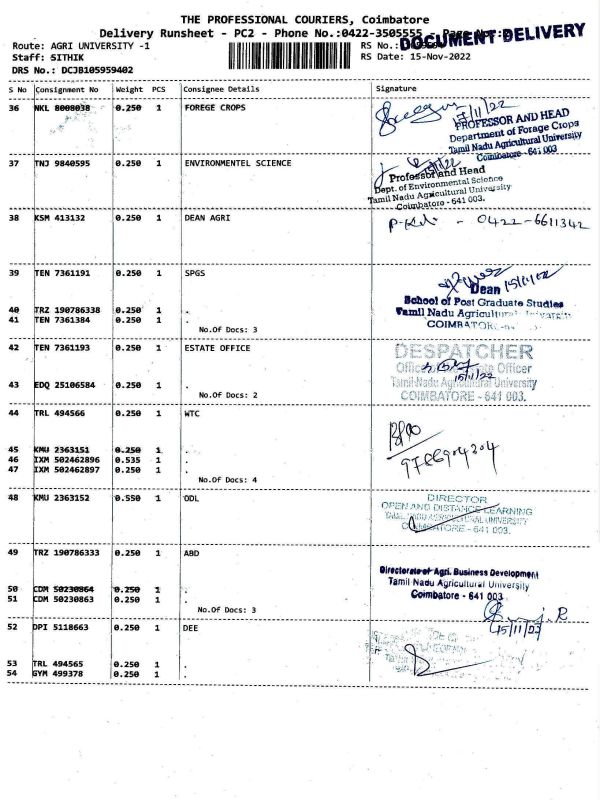 THE PROFESSIONAL COURIERS, Coimbatore
Delivery Runsheet - PC2 - Phone No.:0422-3505555
DOCUMENT DELIVERY
Route: AGRI UNIVERSITY -1
RS No.:
Staff: SITHIK
RS Date: 15-Nov-2022
DRS No.: DCJB105959402
S No Consignment No Weight PCS Consignee Details Signature
36 NKL 8008038 0.250 1 FOREGE CROPS
17/11/22
PROFESSOR AND HEAD
Department of Forage Crops
Tamil Nadu Agricultural University
Coimbatore - 641 003
37 TNJ 9840595 0.250 1 ENVIRONMENTEL SCIENCE
Professor and Head
Dept. of Environmental Science
Tamil Nadu Agricultural University
Coimbatore - 641 003.
38 KSM 413132 0.250 1 DEAN AGRI
- 0422-6611342
39 TEN 7361191 0.250 1 SPGS
15/11/22
Dean
School of Post Graduate Studies
Tamil Nadu Agricultural University
COIMBATORE
40 TRZ 190786338 0.250 1 .
41 TEN 7361384 0.250 1 .
No.Of Docs: 3
42 TEN 7361193 0.250 1 ESTATE OFFICE
DESPATCHER
Officer
15/11/22
Tamil Nadu Agricultural University
COIMBATORE - 641 003.
43 EDQ 25106584 0.250 1 .
No.Of Docs: 2
44 TRL 494566 0.250 1 WTC
45 KMU 2363151 0.250 1 .
46 IXM 502462896 0.535 1 .
47 IXM 502462897 0.250 1 .
No.Of Docs: 4
48 KMU 2363152 0.550 1 ODL
DIRECTOR
OPEN AND DISTANCE LEARNING
TAMIL NADU AGRICULTURAL UNIVERSITY
COIMBATORE - 641 003.
49 TRZ 190786333 0.250 1 ABD
Directorate of Agri. Business Development
Tamil Nadu Agricultural University
Coimbatore - 641 003
50 CDM 50230864 0.250 1 .
51 CDM 50230863 0.250 1 .
No.Of Docs: 3
52 DPI 5118663 0.250 1 DEE
53 TRL 494565 0.250 1 .
54 GYM 499378 0.250 1 .